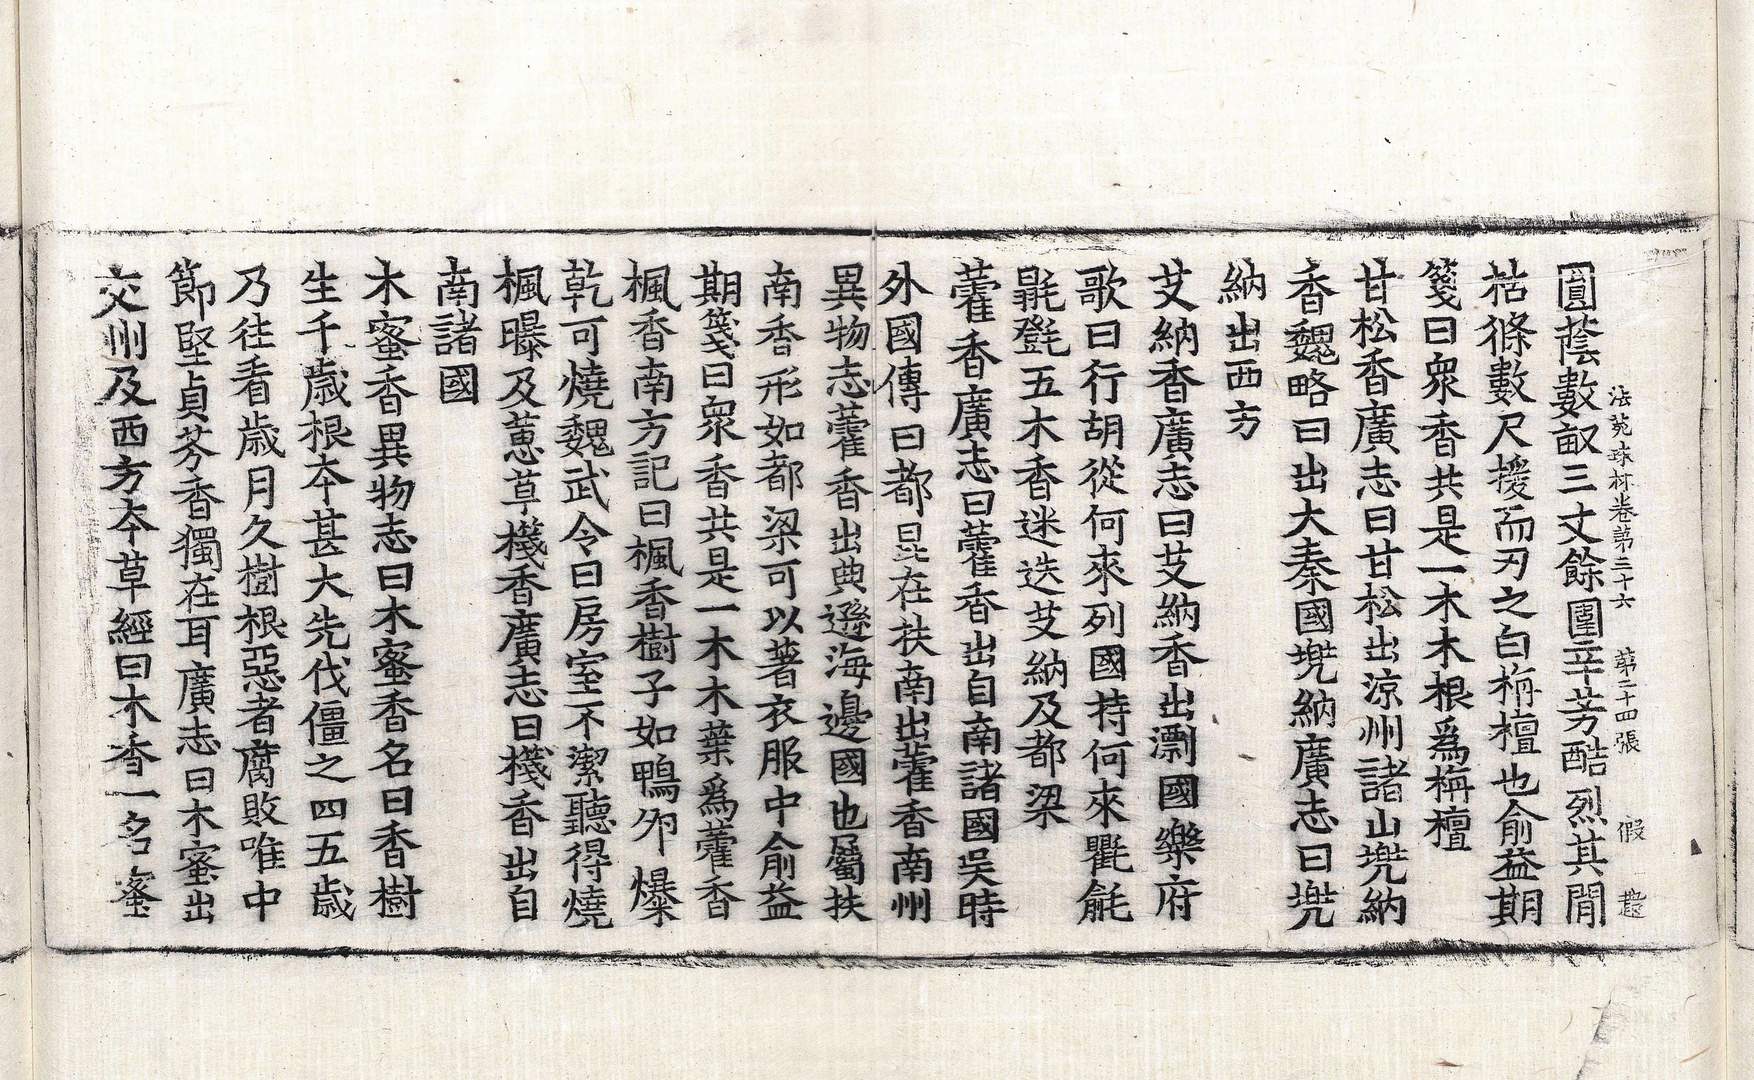 法苑珠林卷第三十六 第二十四張 假
圓蔭數畝三丈餘圍辛芳酷烈其閒
枯條數尺援而刃之白栴檀也俞益期
箋曰衆香共是一木木根爲栴檀
甘松香廣志曰甘松出涼州諸山兜納
香魏略曰出大秦國兜納廣志曰兜
納出西方
艾納香廣志曰艾納香出剽國樂府
歌曰行胡從何來列國持何來氍毹
㲪㲪五木香迷迭艾納及都梁
藿香廣志曰藿香出自南諸國吳時
外國傳曰都昆在扶南出藿香南州
異物志藿香出典遜海邊國也屬扶
南香形如都梁可以著衣服中俞益
期箋曰衆香共是一木木葉爲藿香
楓香南方記曰楓香樹子如鴨卵爆
乾可燒魏武令曰房室不潔聽得燒
楓曝及蕙草棧香廣志曰棧香出自
南諸國
木蜜香異物志曰木蜜香名曰香樹
生千歲根本甚大先伐僵之四五歲
乃往看歲月久樹根惡者腐敗唯中
節堅貞芬香獨在耳廣志曰木蜜出
交州及西方本草經曰木香一名蜜